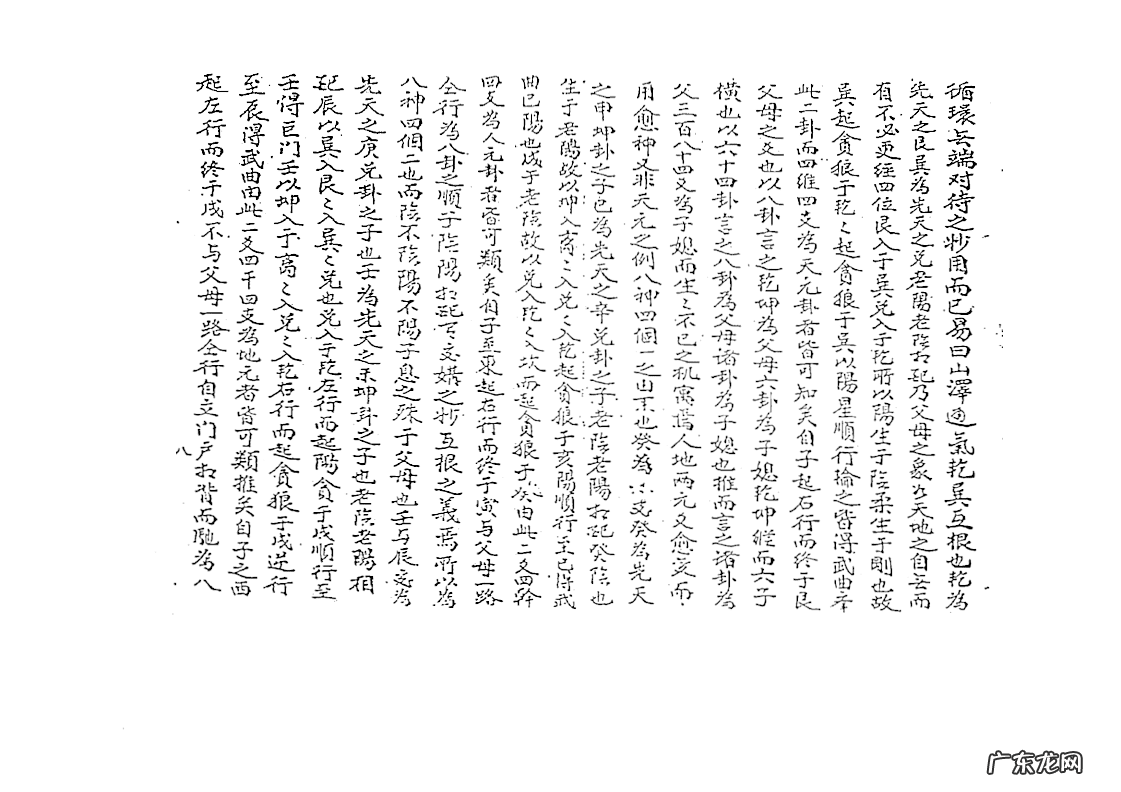 循環无端对待之妙用而已易曰山澤通氣乾巽互根也乾為
先天之艮巽為先天之兌老陽老陰相配乃父母之象出天地之自去而
有不必更经四位艮入于巽兌入于乾所以陽生于陰柔生于剛也故
巽起貪狼于乾乾起貪狼于巽以陽星順行掄之皆得武曲
此二卦而四维四支為天元卦者皆可知矣自子起右行而终于艮
父母之爻也以八卦言之乾坤為父母六卦為子媳乾坤縱而六子
横也以六十四卦言之八卦為父母诸卦為子媳也推而言之诸卦為
父三百八十四爻為子媳而生生不已之机寓焉人地两元又愈变而
用愈神又非天元之例八神四個一之出来也癸為 癸為先天
之甲坤卦之子已為先天之辛兌卦之子老陰老陽相配癸陰也
生于老陽故以坤入离离入兌兌入乾起貪狼于亥陽順行至已得武
曲已陽也成于老陰故以兌入乾乾入坎而起貪狼于癸由此二爻四幹
四支為人元卦者皆可類矣自子至東起右行而终于寅与父母一路
仝行為八卦之順子陰陽相配交媾之妙互根之義焉所以為
八神四個二也而陰不陰陽不陽子息之殊于父母也壬与辰交為
先天之庚兌卦之子也壬為先天之未坤卦之子也老陰老陽相
配辰以巽入艮艮入巽巽兌也兌入于乾左行而起陽貪于戌順行至
壬得巨门壬以坤入于离离入兌兌入乾右行而起貪狼于戌逆行
至辰得武曲由此二爻四干四支為地元者皆可類推矣自子之西
起左行而终于戌不与父母一路仝行自立门户相背而馳為八
八
广东龙网